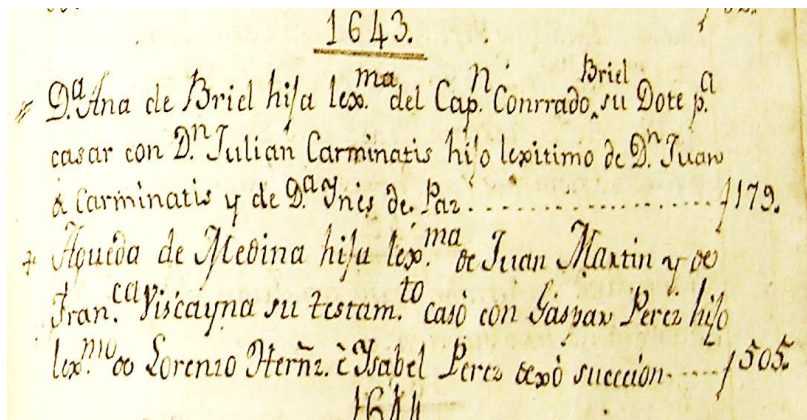 1643.
D.ª Ana de Briel hija lex.ma del Cap.n Conrrado Briel su Dote p.ª
casar con D.n Julian Carminatis hijo lexitimo de D.n Juan
de Carminatis y de D.ª Ines de Paz .................... f 179.
Agueda de Medina hija lex.ma de Juan Martin y de
Fran.ca Viscayna su testam.to casò con Gaspar Perez hijo
lex.mo de Lorenzo Herñz. è Ysabel Perez dexò succeción ..... f 505.
1644